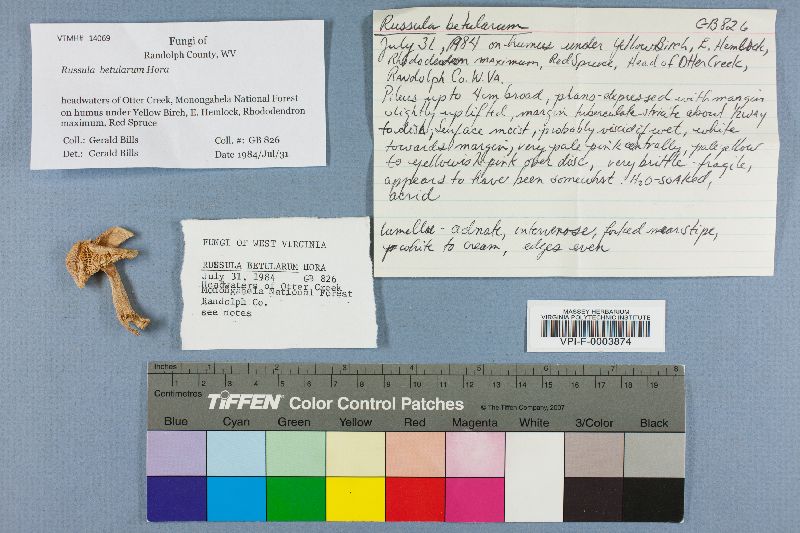 VTMH# 14069
Fungi of
Randolph County, WV
Russula betularum Hora
headwaters of Otter Creek, Monongahela National Forest
on humus under Yellow Birch, E. Hemlock, Rhododendron
maximum, Red Spruce
Coll.: Gerald Bills Coll. #: GB 826
Det.: Gerald Bills Date 1984/Jul/31
Russula betularum GB826
July 31, 1984 on humus under Yellow Birch, E. Hemlock,
Rhododendron maximum, Red Spruce, Head of Otter Creek,
Randolph Co. W. Va.
Pileus up to 4cm broad, plano-depressed with margin
slightly uplifted, margin tuberculate striate about 1/2 way
to disk, surface moist, probably viscid if wet, white
towards margin, very pale pink centrally, pale yellow
to yellowish pink over disc, very brittle - fragile,
appears to have been somewhat H2O-soaked,
acrid
Lamellae - adnate, intervenose, forked near stipe,
white to cream, edges even
FUNGI OF WEST VIRGINIA
RUSSULA BETULARUM HORA
July 31, 1984 GB 826
Headwaters of Otter Creek
Monongahela National Forest
Randolph Co.
see notes
MASSEY HERBARIUM
VIRGINIA POLYTECHNIC INSTITUTE
VPI-F-0003874
Inches 1 2 3 4 5 6 7 8
Centimetres 1 2 3 4 5 6 7 8 9 10 11 12 13 14 15 16 17 18 19
TIFFEN® Color Control Patches © The Tiffen Company, 2007
Blue Cyan Green Yellow Red Magenta White 3/Color Black